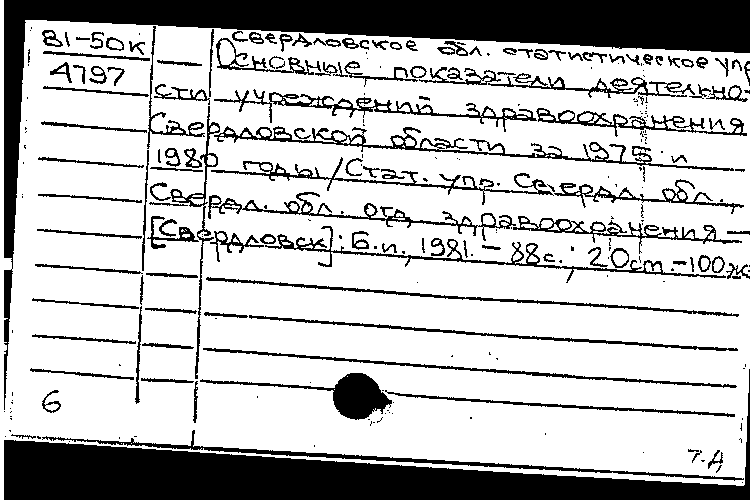 81-50К
4797
Свердловское обл. статистическое упр
Основные показатели деятельно-
сти учреждений здравоохранения
Свердловской области за 1975 и
1980 годы/Стат. упр. Свердл. обл.,
Свердл. обл. отд. здравоохранения.—
[Свердловск]: Б.и., 1981. – 88с.; 20см.-100экз
6
Т.Д